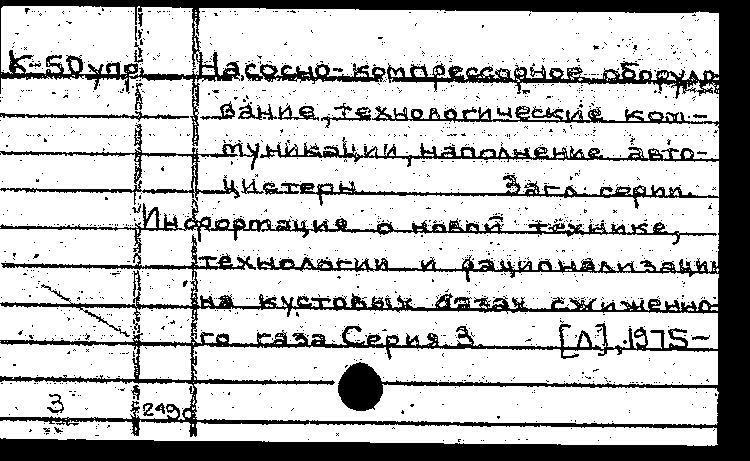 К-50упр Насосно-компрессорное оборудо-
вание, технологические ком-
муникации, наполнение авто-
цистерн Загл. серии.
Информация о новой технике,
технологии и рационализации
на кустовых базах сжиженно-
го газа Серия 3. [Л], 1975-
3 249с